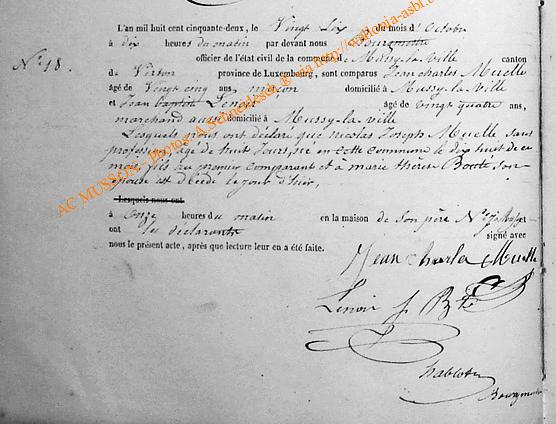 N° 18.
L'an mil huit cent cinquante-deux, le Vingt Six du mois d'Octobre
à dix heures du matin par devant nous Bourgmestre
officier de l'état civil de la commune de Mussy-la-Ville canton
de Virton province de Luxembourg, sont comparus Jean Charles Muelle
âgé de Vingt cinq ans, maçon domicilié à Mussy-la-ville
et Jean baptiste Lenoir âgé de vingt quatre ans,
marchand aussi domicilié à Mussy-la-ville
Lesquels nous ont déclaré que nicolas Joseph Muelle sans
profession âgé de huit Jours, né en cette commune le dix huit de ce
mois, fils du premier comparant et à marie thérèse Bouté son
épouse est décédé le jour d'hier,
Lesquels nous ont
à onze heures du matin en la maison de son père N°
ont les déclarants signé avec
nous le présent acte, après que lecture leur en a été faite.
Jean charles Muelle
Lenoir J Bte
Bourgmestre
AC MUSSON - Photos: A Schneidesch @ via http://wallonia-asbl.